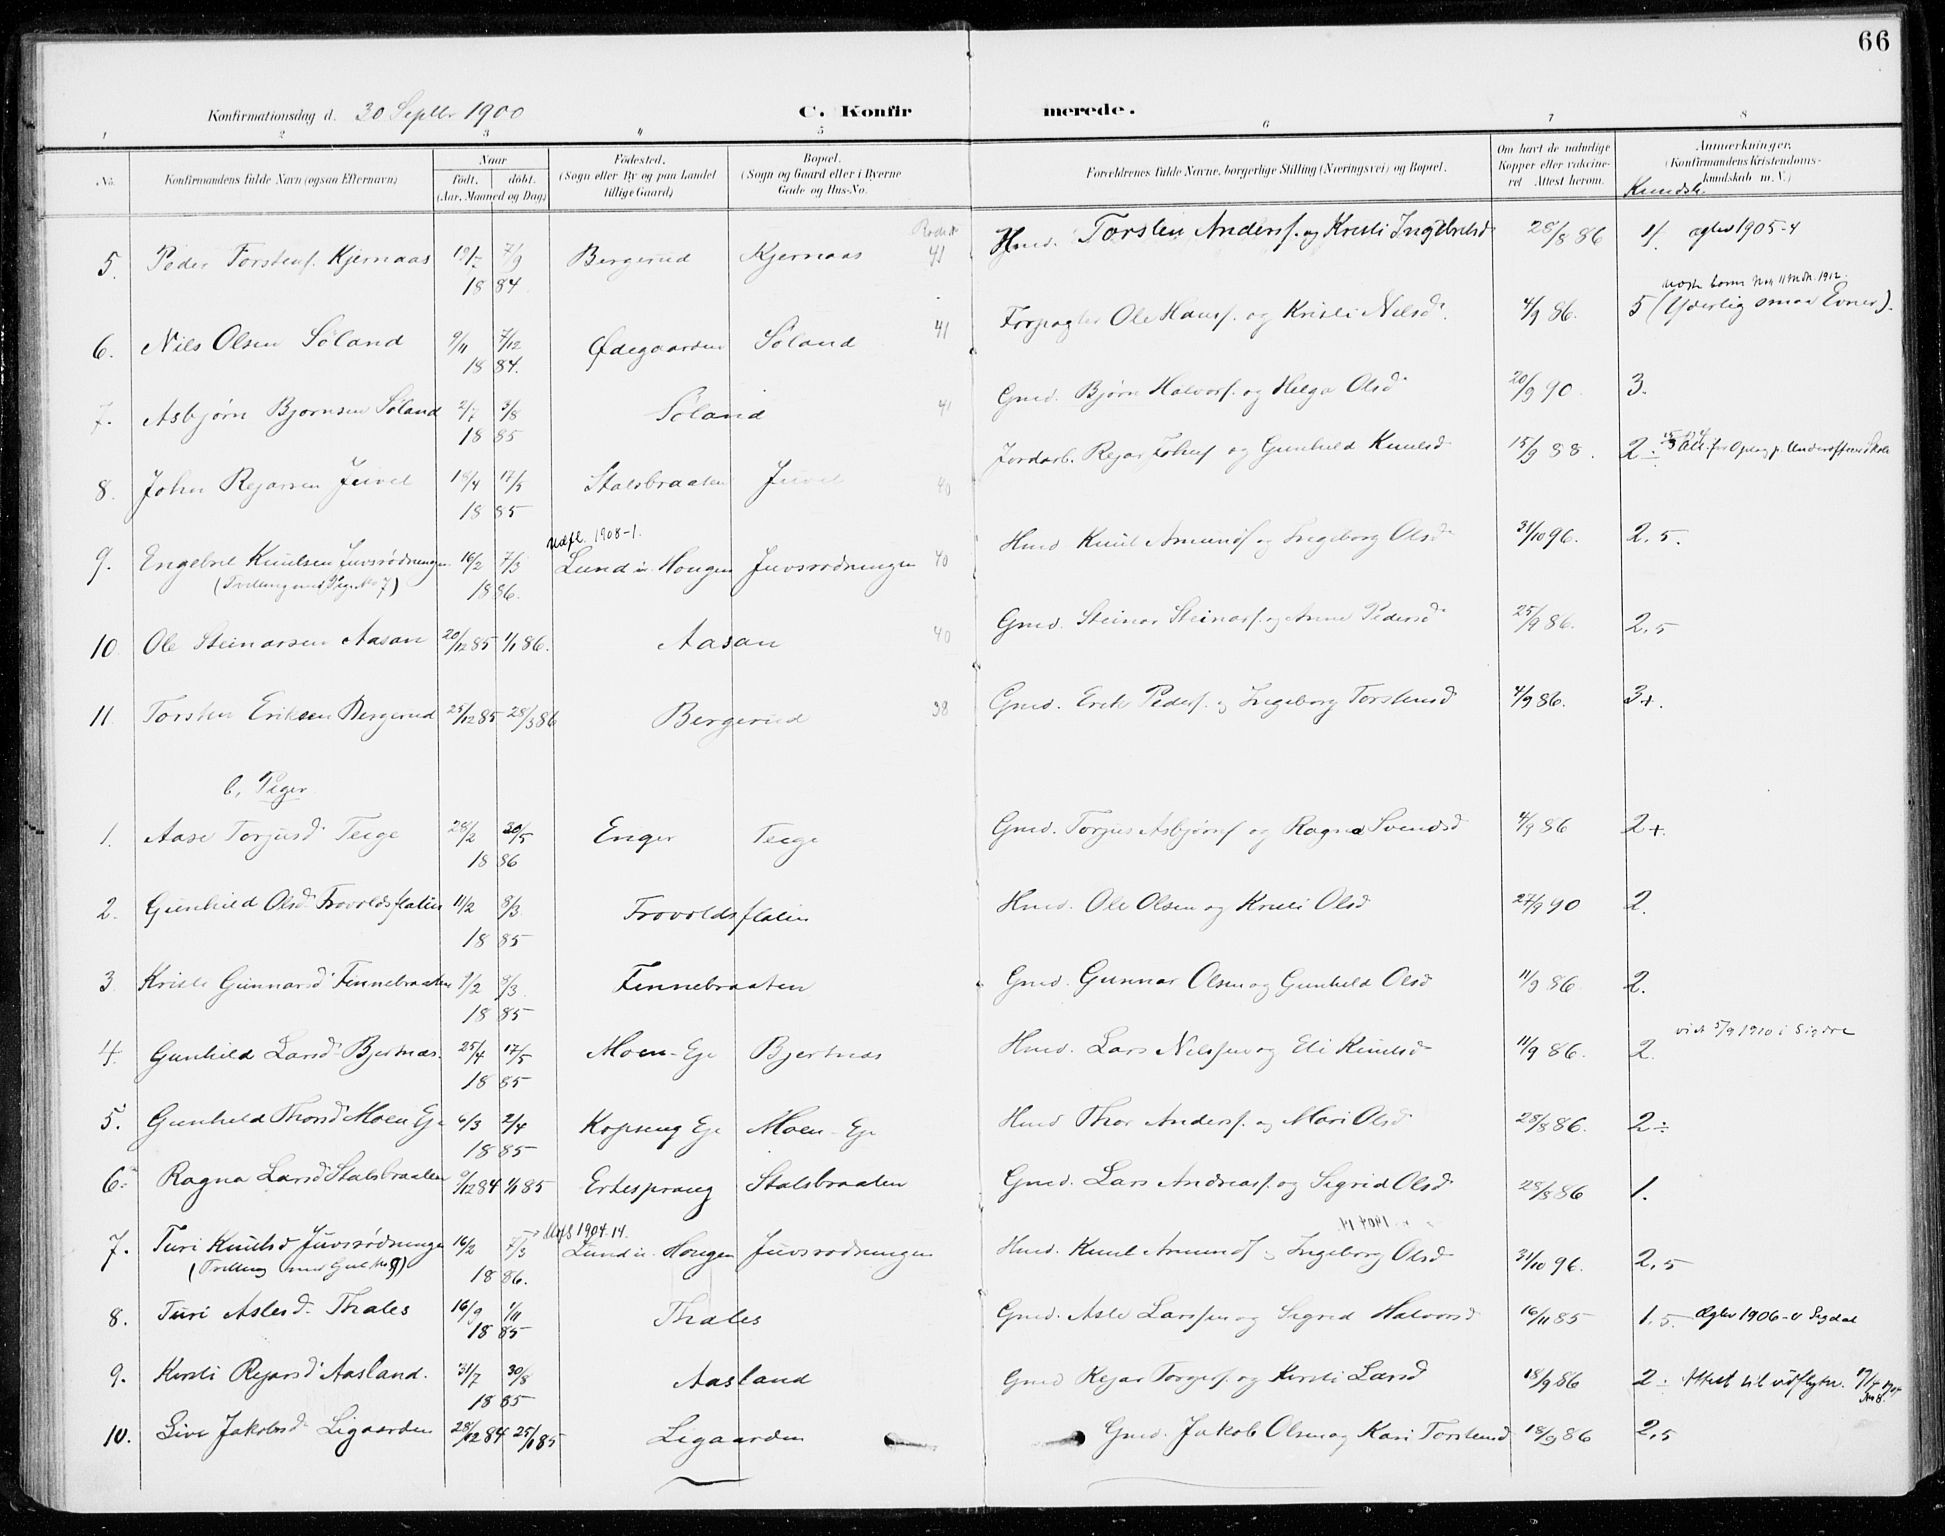 66
Konfirmationsdag d. 30 Septbr 1900 C. Konfir merede.
1 2 3 4 5 6 7 8
No. Konfirmandens fulde Navn (ogsaa Efternavn) Naar Født, døbt. (Aar, Maaned og Dag) Fødested, (Sogn eller By og paa Landet tillige Gaard) Bopæl. (Sogn og Gaard eller i Byerne Gade og Hus-No. Forældrenes fulde Navne, borgerlige Stilling (Næringsvei) og Bopæl. Om havt de naturlige Kopper eller vakcineret. Attest herom. Anmerkninger, (Konfirmandens Kristendomskundskab m. V.)
Kundsk.
5. Peder Torstens. Kjernaas 19/ 7/9 1884 Bergerud Kjernaas 41 Hmd. Torsten Anders. og Kristi Ingebretsd 28/8 86 1/. aglev 1905-4
6. Nils Olsen Søland 9/11 7/12 1884. Ødegaarden Søland 41 Forpagter Ole Hans. og Kristi Nilsd. 4/9 86. 5 (Yderlig smaa Evner).
7. Asbjørn Bjørnsen Søland 2/7 3/8 1885 Søland 41 Gmd. Bjørn Halvors. og Helga Olsd 20/9 90 3.
8. John Rejarsen Juvel 19/4 17/5 1885 Stalsbraaten Juvel 40 Jordarb. Rejar Johns. og Gunhild Knutsd 15/9 88. 2÷
Udfl. 1908-1.
9. Engebret Knutsen Juvsrødningen 16/2 7/3 1886. Lund u. Hougen Juvsrødningen 40 Hmd. Knut Amunds. og Ingeborg Olsd 31/10 96. 2,5.
(Tvilling med Pige No 7)
10. Ole Steinarsen Aasan 20/12 85 1/1 86. Aasan 40 Gmd. Steinar Steinars. og Anne Pedersd 25/9 86. 2,5
11. Torsten Eriksen Bergerud 25/12 85 28/3 86 Bergerud 38 Gmd. Erik Peders. og Ingeborg Torstensd 4/9 86. 3+.
b, Piger.
1. Aase Torjusd Teige 28/2 30/5 1886 Enger Teige Gmd. Torjus Asbjørns. og Ragna Svendsd 4/9 86 2+.
2. Gunhild Olsd Frovoldsflatin 11/2 8/3 1885 Frovoldsflatin Hmd. Ole Olsen og Kristi Olsd 27/9 90 2.
3. Kristi Gunnarsd Finnebraaten 9/2 8/3 1885 Finnebraaten Gmd. Gunnar Olsen og Gunhild Olsd 11/9 86 2.
4. Gunhild Larsd Bjertnæs. 25/4 17/5 1885 Moen-Eje Bjertnæs Hmd. Lars Nilssen og Eli Knutsd 11/9 86. 2. viet 5/9 1910 i Sigdal
5. Gunhild Thorsd Moen Eje 6/3 2/4 1885 Kopseng Eje Moen-Eje Hmd Thor Anders. og Mari Olsd 28/8 86. 2÷
6. Ragna Larsd Stalsbraaten 9/12 84 1/1 85 Ertespræng Stalsbraaten Gmd. Lars Andreas. og Sigrid Olsd 28/8 86 1.
Udfl 1904.14.
7. Turi Knutsd Juvsrødningen 16/2 7/3 1886. Lund u. Hougen Juvsrødningen Hmd. Knut Amunds. og Ingeborg Olsd 31/10 96. 2,5
(Tvilling med Gut No 9)
8. Turi Aslesd Thales 16/9 1/11 1885 Thales Gmd. Asle Larssen og Sigrid Halvorsd 16/11 85 1,5. Aglev 1906-4 Sigdal
9. Kirsti Rejarsd Aasland. 31/7 30/8 1885 Aasland Gmd Rejar Torgers. og Kirsti Larsd 18/9 86 2÷ Attest til udflytn.
10. Live Jakobsd Ligaarden 28/12 84 25/1 85 Ligaarden Gmd. Jakob Olsen og Kari Torstensd 18/9 86 2,5